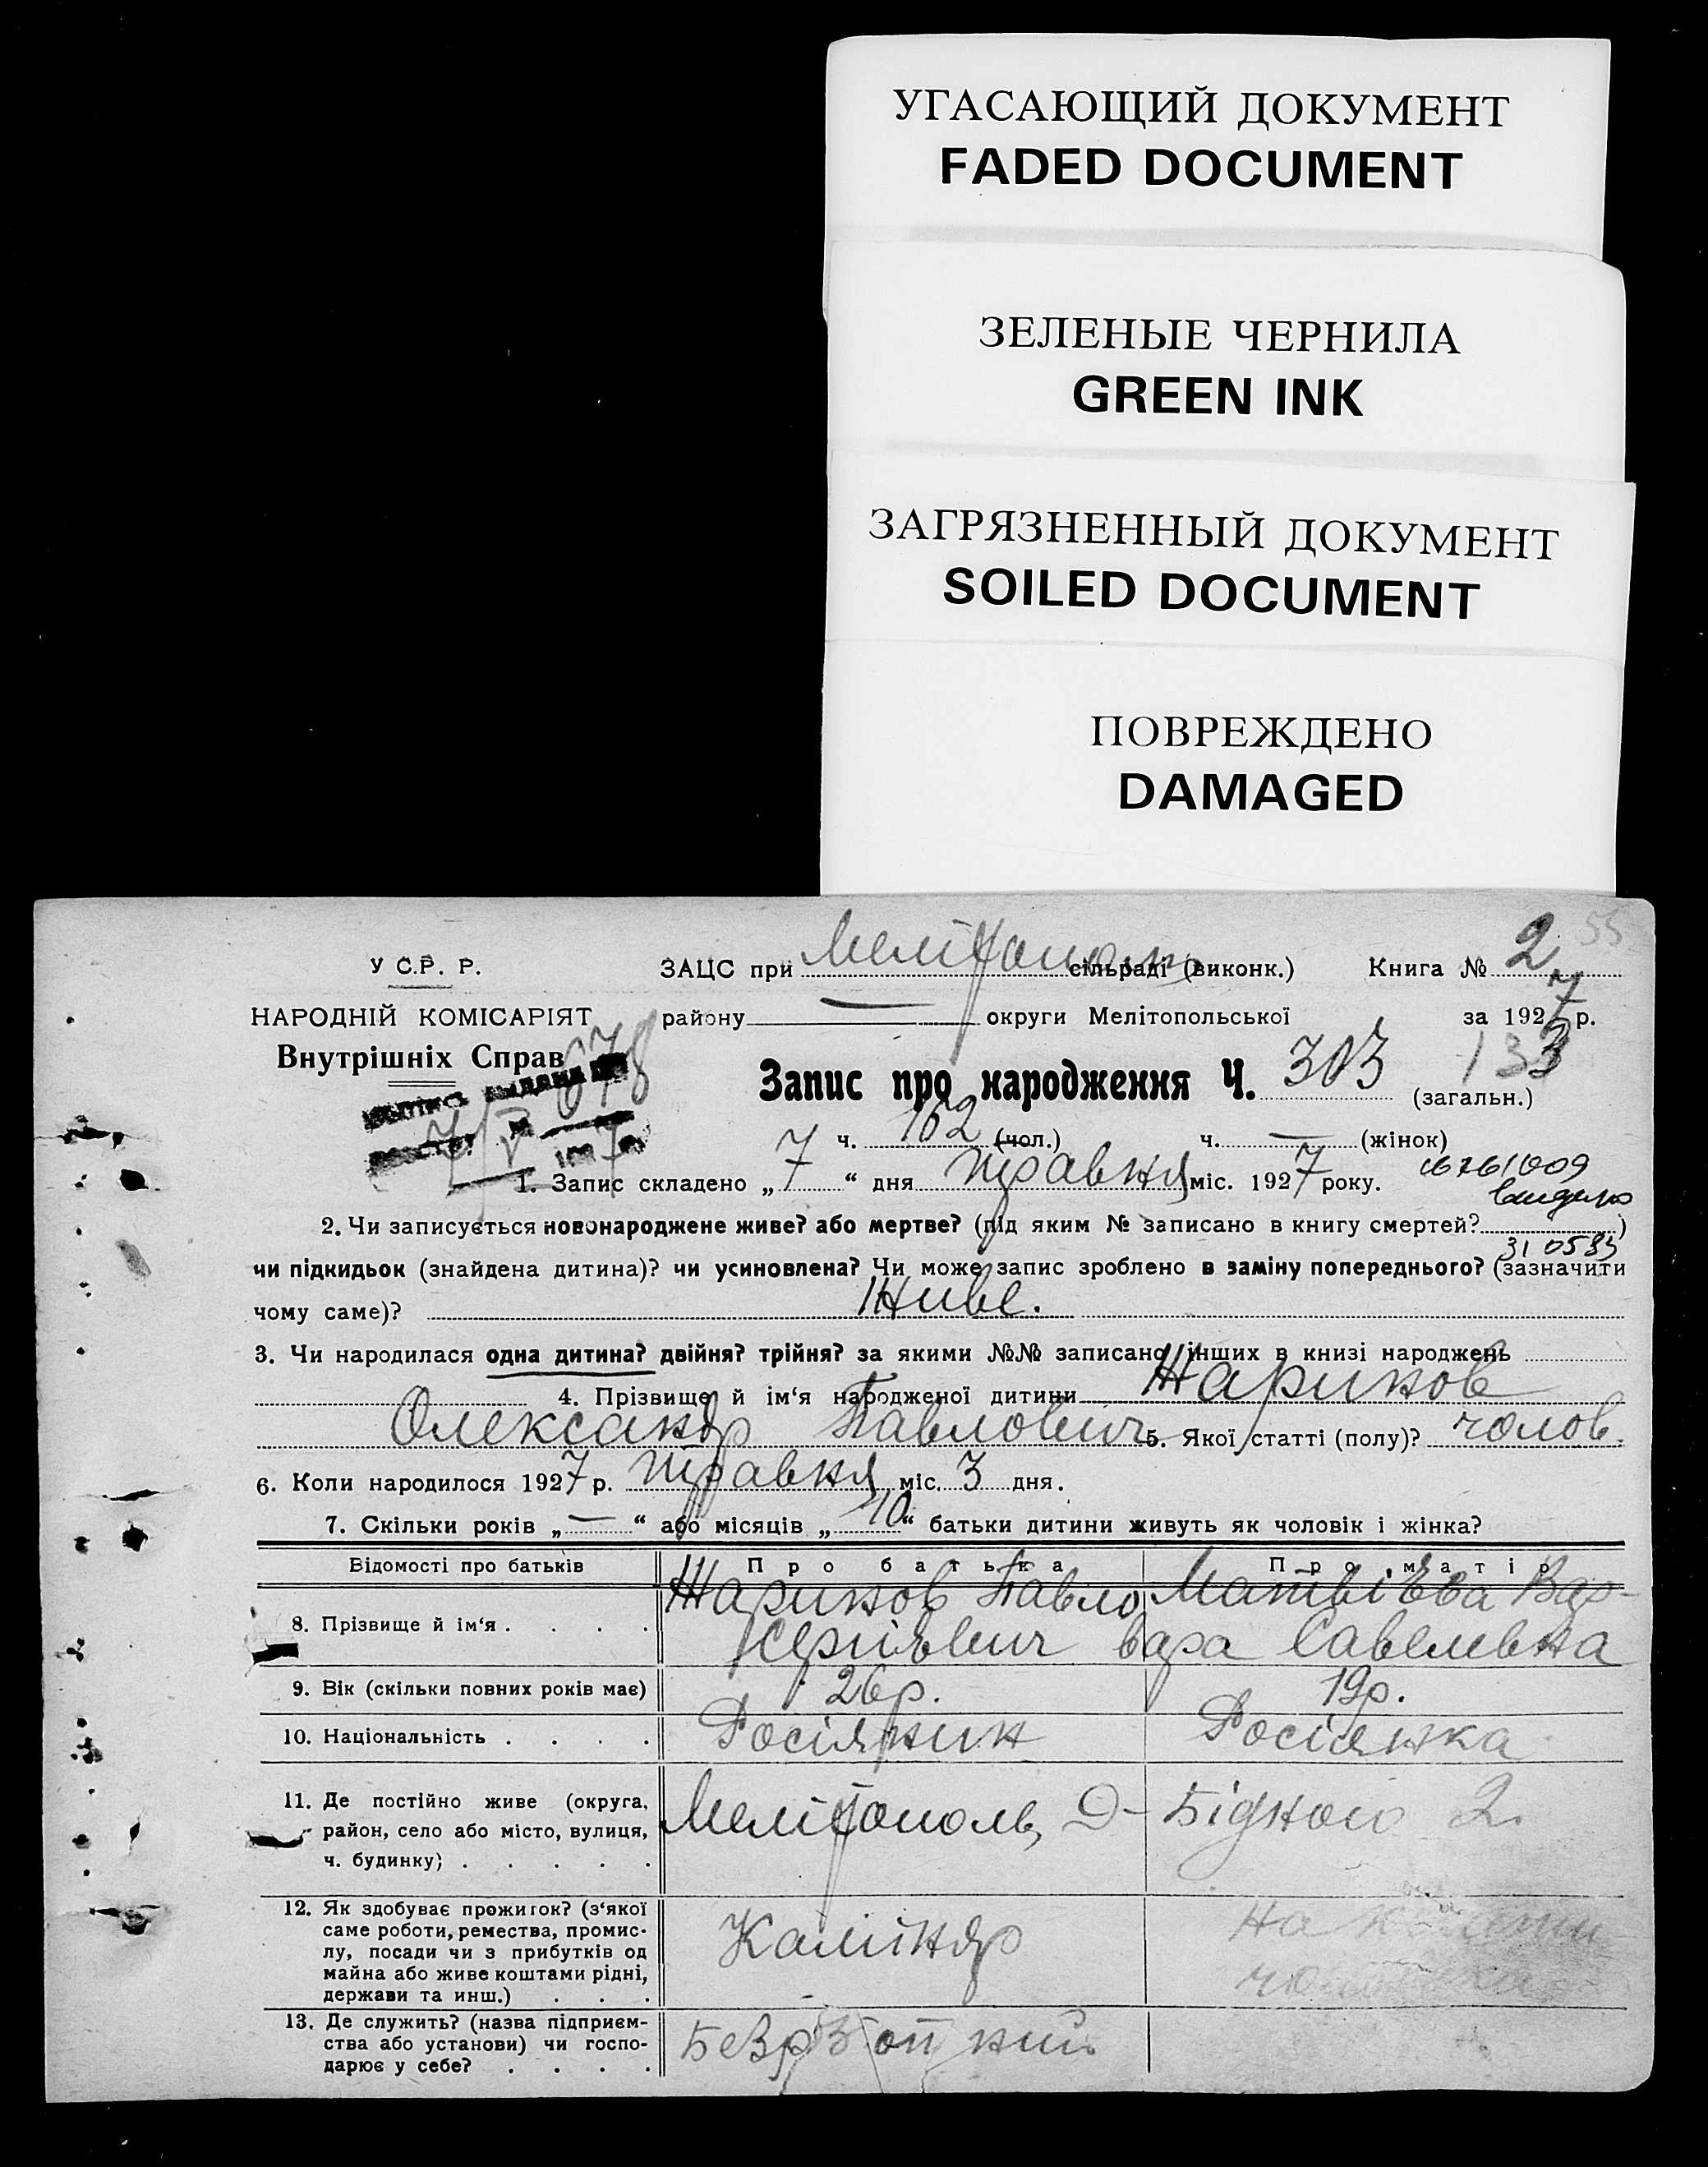 УГАСАЮЩИЙ ДОКУМЕНТ
FADED DOCUMENT
ЗЕЛЕНЫЕ ЧЕРНИЛА
GREEN INK
ЗАГРЯЗНЕННЫЙ ДОКУМЕНТ
SOILED DOCUMENT
ПОВРЕЖДЕНО
DAMAGED
55
У С.Р. Р. ЗАЦС при Мелітополь сільраді (виконк.) Книга № 2
НАРОДНІЙ КОМІСАРІЯТ району — округи Мелітопольської за 1927 р.
Внутрішніх Справ 678
Запис про народження Ч. 303 133
(загальн.)
7/V 7
ч. 162 (чол.) ч. — (жінок)
1. Запис складено „7“ дня травня міс. 1927 року.
2. Чи записується новонароджене живе? або мертве? (під яким № записано в книгу смертей? )
чи підкидьок (знайдена дитина)? чи усиновлена? Чи може запис зроблено в заміну попереднього? (зазначити
чому саме)? Живе.
3. Чи народилася одна дитина? двійня? трійня? за якими №№ записано інших в книзі народжень
4. Прізвище й ім‘я народженої дитини Жариков
Олександр Павлович 5. Якої статті (полу)? чолов.
6. Коли народилося 1927 р. травня міс. 3 дня.
7. Скільки років „—“ або місяців „10“ батьки дитини живуть як чоловік і жінка?
Відомості про батьків Про батька Про матір
8. Прізвище й ім‘я . . . . Жариков Павло Матвієва Вар-
Сергієвич вара Савелевна
9. Вік (скільки повних років має) 26 р. 19 р.
10. Національність . . . . Росіянин Росіянка
11. Де постійно живе (округа,
район, село або місто, вулиця, Мелітополь, Д-Бідного 2
ч. будинку) . . . . .
12. Як здобуває прожиток? (з‘якої
саме роботи, ремества, промис-
лу, посади чи з прибутків од
майна або живе коштами рідні,
держави та инш.) . . .
на
13. Де служить? (назва підприєм-
ства або установи) чи госпо-
дарює у себе? . . . .